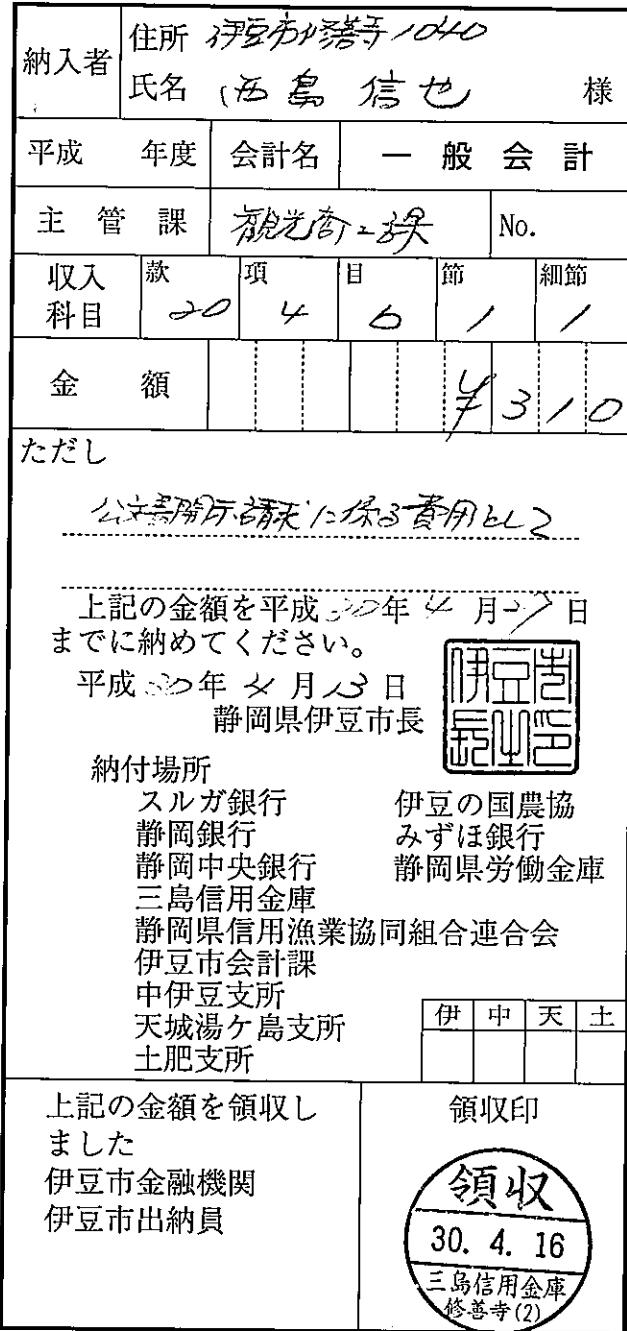 納入者
住所 伊豆市修善寺1040
氏名 西島 信也 様
平成 年度 会計名 一般会計
主管課 観光商工課 No.
収入科目 款 20 項 4 目 6 節 1 細節 1
金額 ¥310
ただし
公文書開示請求に係る費用として
上記の金額を平成30年4月27日
までに納めてください。
平成30年4月13日
静岡県伊豆市長
伊豆市長之印
納付場所
スルガ銀行 伊豆の国農協
静岡銀行 みずほ銀行
静岡中央銀行 静岡県労働金庫
三島信用金庫
静岡県信用漁業協同組合連合会
伊豆市会計課
中伊豆支所
天城湯ケ島支所
土肥支所
伊 中 天 土
上記の金額を領収し
ました
伊豆市金融機関
伊豆市出納員
領収印
領収
30. 4. 16
三島信用金庫
修善寺(2)